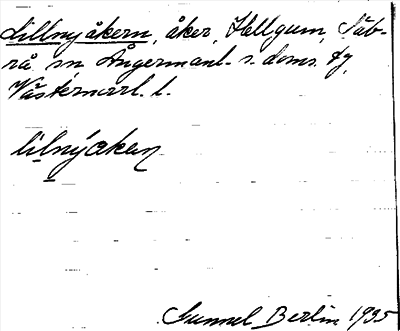 Lillnyåkern, åker, Hellgum, Säb-
rå sn Ångermanl. s. doms. fg,
Västernorrl. l.
lilnýakən
Gunnel Berlin 1935